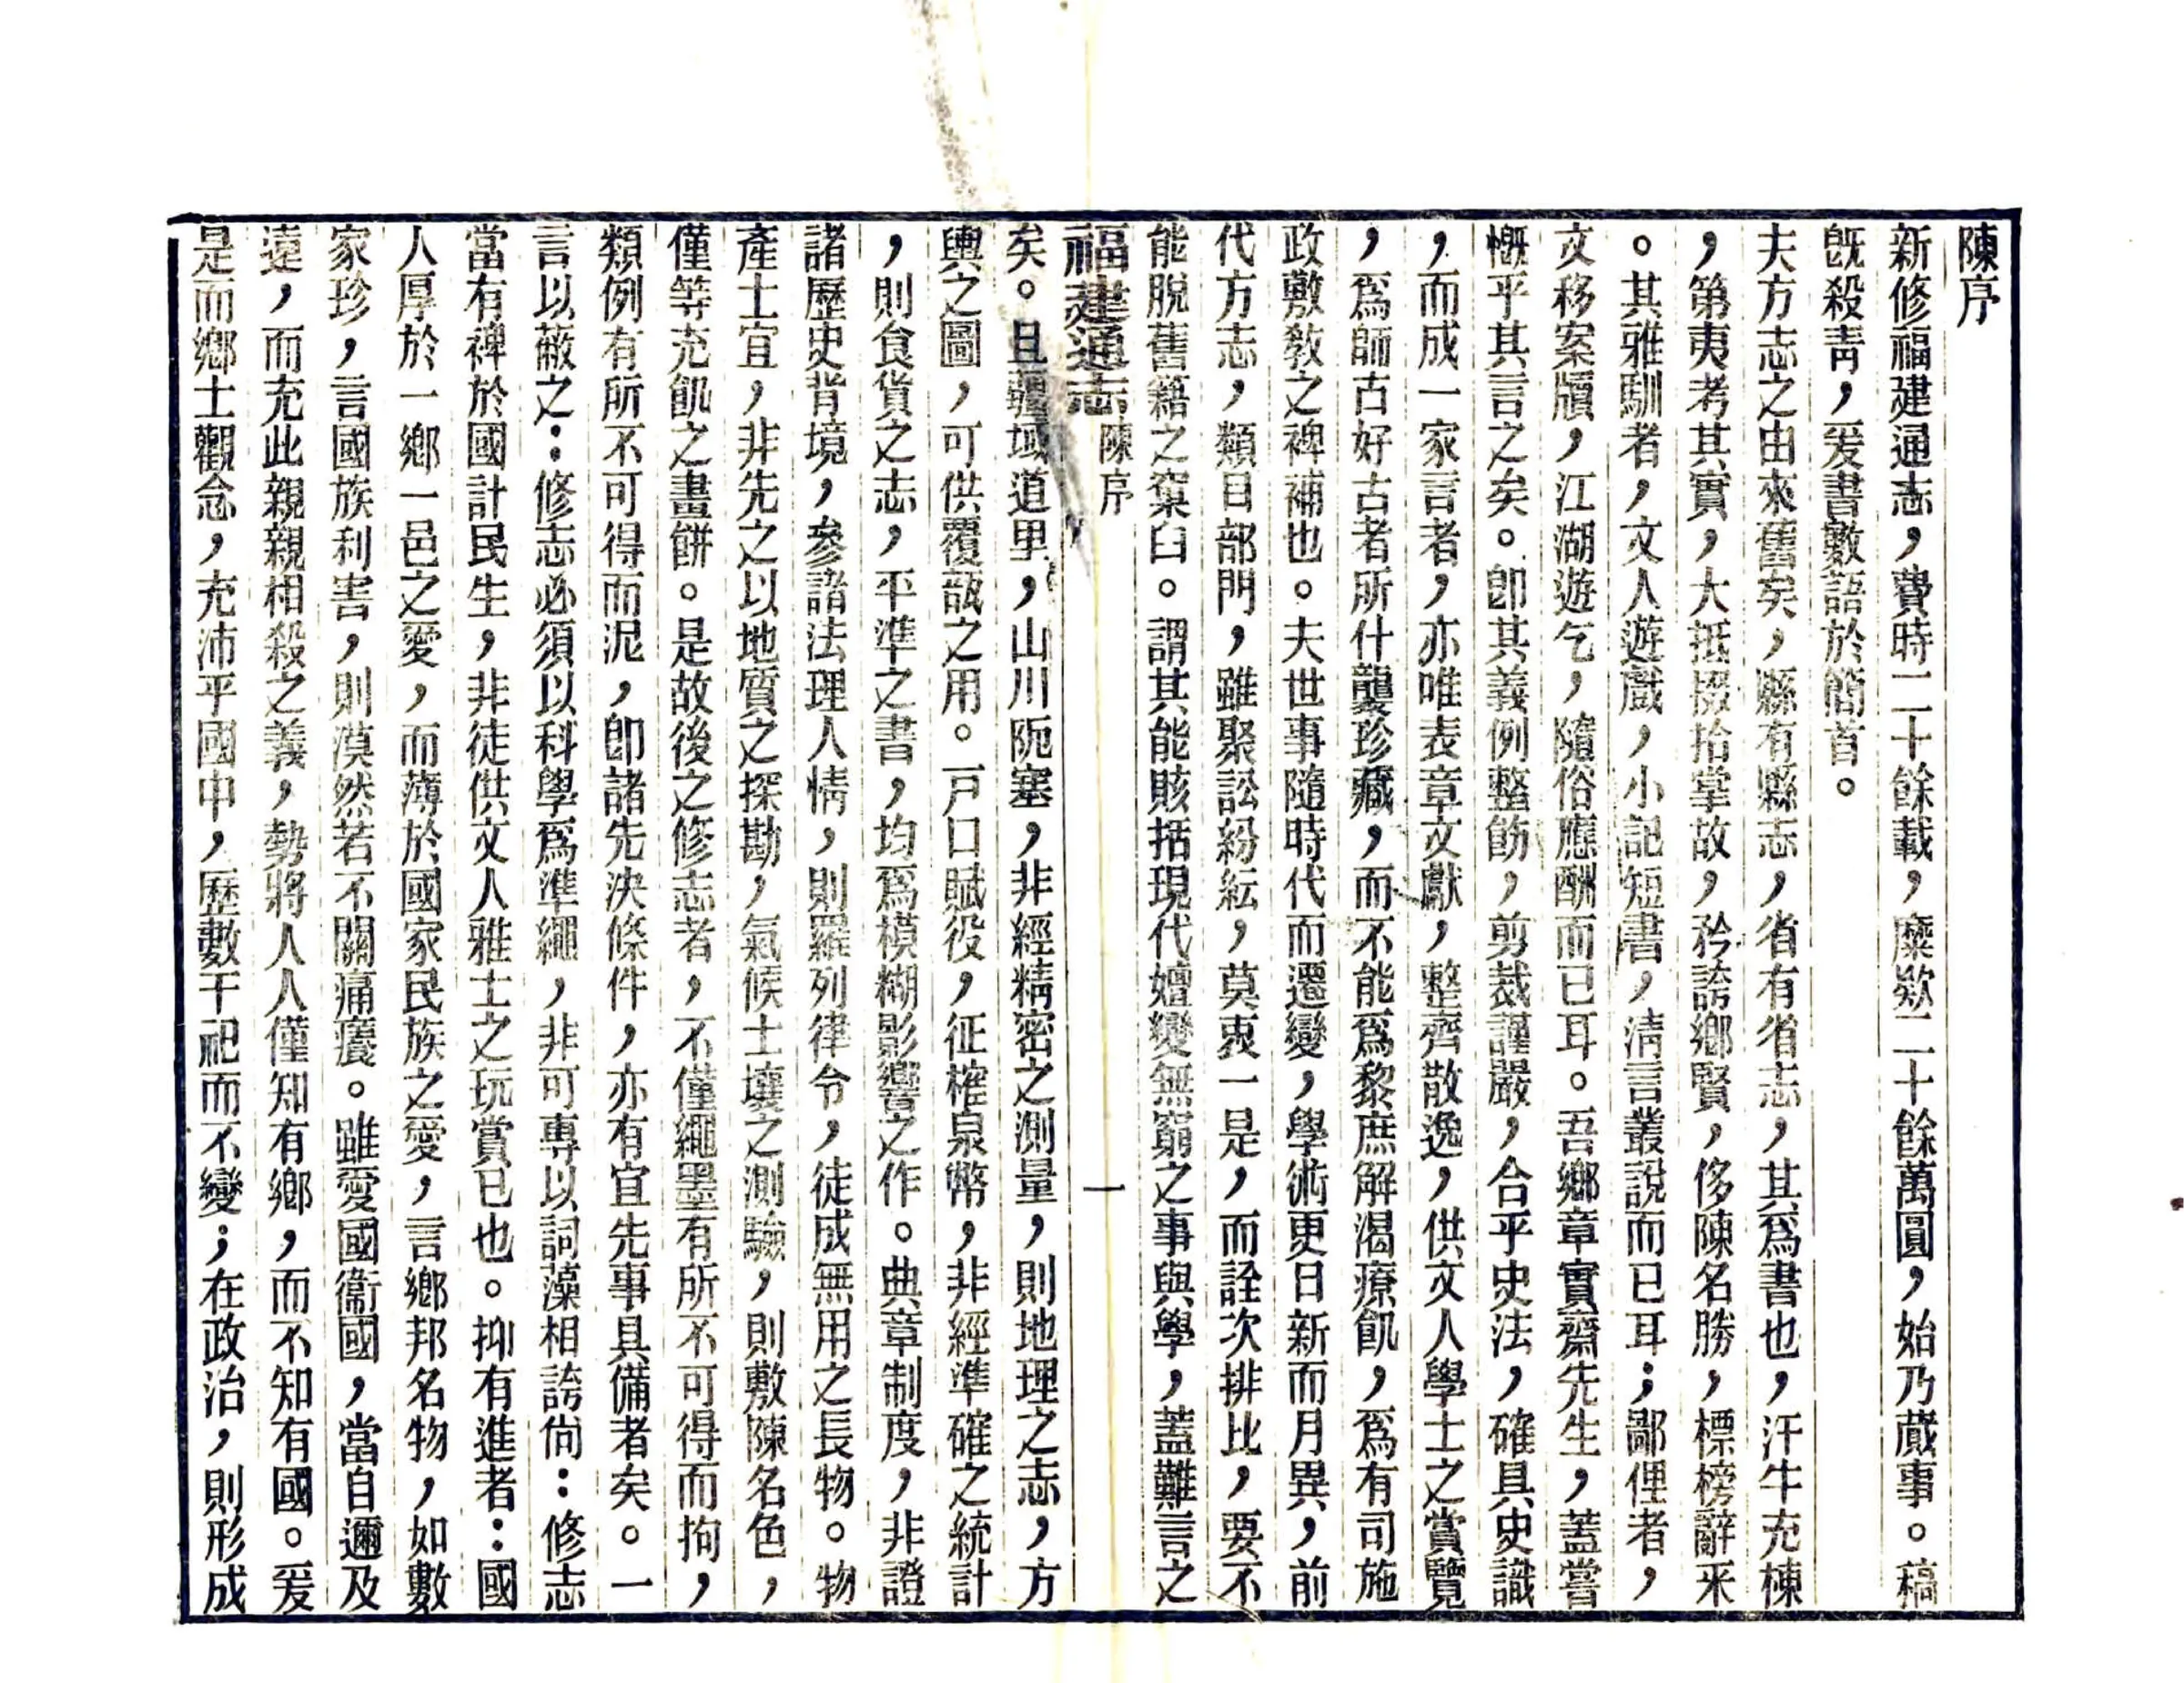 陳序
新修福建通志，費時二十餘載，糜欵二十餘萬圓，始乃蕆事。稿
旣殺靑，爰書數語於簡首。
夫方志之由來舊矣，縣有縣志，省有省志，其爲書也，汗牛充棟
，第夷考其實，大抵掇拾掌故，矜誇鄉賢，侈陳名勝，標榜辭采
。其雅馴者，文人遊戲，小記短書，淸言叢說而已耳；鄙俚者，
文移案牘，江湖遊乞，隨俗應酬而已耳。吾鄉章實齋先生，蓋嘗
慨乎其言之矣。卽其義例整飭，剪裁謹嚴，合乎史法，確具史識
，而成一家言者，亦唯表章文獻，整齊散逸，供文人學士之賞覽
，爲師古好古者所什襲珍藏，而不能爲黎庶解渴療飢，爲有司施
政敷敎之裨補也。夫世事隨時代而遷變，學術更日新而月異，前
代方志，類目部門，雖聚訟紛紜，莫衷一是，而詮次排比，要不
能脫舊籍之窠臼。謂其能賅括現代嬗變無窮之事與學，蓋難言之
福建通志 陳序 一
矣。且疆域道里，山川阨塞，非經精密之測量，則地理之志，方
輿之圖，可供覆瓿之用。戶口賦役，征榷泉幣，非經準確之統計
，則食貨之志，平準之書，均爲模糊影響之作。典章制度，非證
諸歷史背境，參諸法理人情，則羅列律令，徒成無用之長物。物
產土宜，非先之以地質之探勘，氣候土壤之測驗，則敷陳名色，
僅等充飢之畫餅。是故後之修志者，不僅繩墨有所不可得而拘，
類例有所不可得而泥，卽諸先決條件，亦有宜先事具備者矣。一
言以蔽之：修志必須以科學爲準繩，非可專以詞藻相誇尙：修志
當有裨於國計民生，非徒供文人雅士之玩賞已也。抑有進者：國
人厚於一鄉一邑之愛，而薄於國家民族之愛，言鄉邦名物，如數
家珍，言國族利害，則漠然若不關痛癢。雖愛國衞國，當自邇及
遠，而充此親親相殺之義，勢將人人僅知有鄉，而不知有國。爰
是而鄉土觀念，充沛乎國中，歷數千祀而不變；在政治，則形成